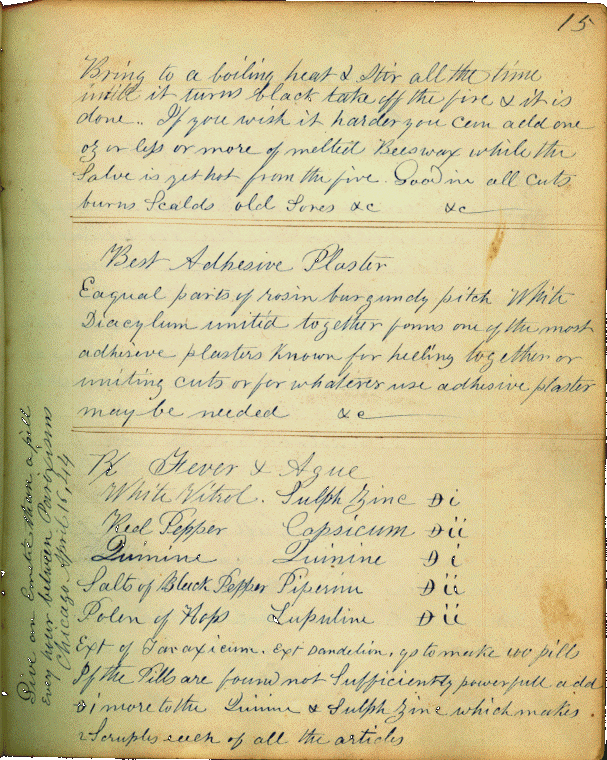 15
Bring to a boiling heat & Stir all the time
untill it turns black take off the fire & it is
done.. If you wish it harder you can add one
oz or less or more of melted Beeswax while the
Salve is yet hot from the fire. Good in all cuts
burns Scalds old Sores &c &c
Best Adhesive Plaster
Eaqual parts of rosin burgundy pitch White
Diacylum united together forms one of the most
adhesive plasters Known for heeling together or
uniting cuts or for whatever use adhesive plaster
may be needed &c
Rx Fever & Ague
White Vitrol. Sulph Zinc ℈i
Red Pepper Capsicum ℈ii
Quinine Quinine ℈i
Salts of Black Pepper Piperine ℈ii
Polen of Hops Lupuline ℈ii
Ext of Taraxicum. Ext Dandelion. qs to make 100 pills
If the Pills are found not Sufficiently powerfull add
℈i more to the Quinine & Sulph Zinc which makes.
2 Scruples each of all the articles
Give an Emetic then a pill
Every hour between Paroxisms
Chicago April 16, 44